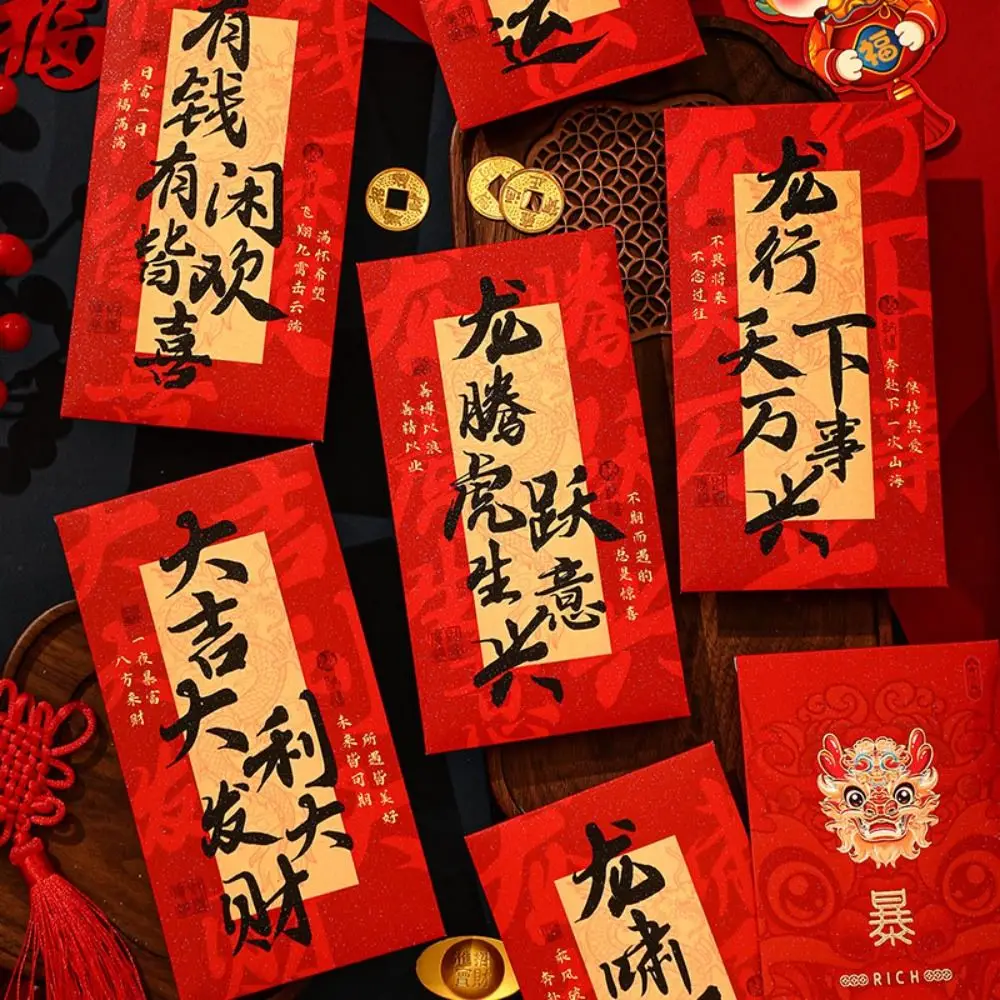 福
有钱有闲皆欢喜
日富一日
幸福满满
满怀希望
飞翔九霄击云端
达
福
龙行天下万事兴
不畏将来
不念过往
保持热爱
奔赴下一次山海
龙腾虎跃生意兴
善博以浪
善精以业
不期而遇的
总是惊喜
大吉大利大发财
一夜暴富
八方来财
所遇皆美好
未来皆可期
龙啸
乘风破
奔赴
招財
進寶
暴
RICH